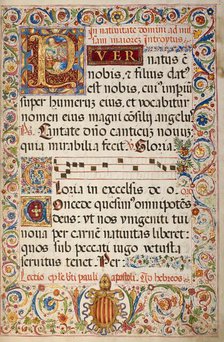 In nativitate domini ad mis
sam maiorē Introytus
PUER
natus ē
nobis, et filius dat⁹
est nobis, cuius impiū
super humerū eius, et vocabitur
nomen eius magni cōsilij āngel⁹
Ps. Cantate dn̄o canticum novū:
quia mirabilia fecit. Gloria
Gloria in excelsis de o. oro
Concede quesum⁹ omnipotēs
deus: ut nos unigeniti tui
nova per carnē nativitas liberet:
quos sub peccati iugo vetusta
servitus tenet. Per
Lectio epłe bti pauli apostoli. Ad hebreos